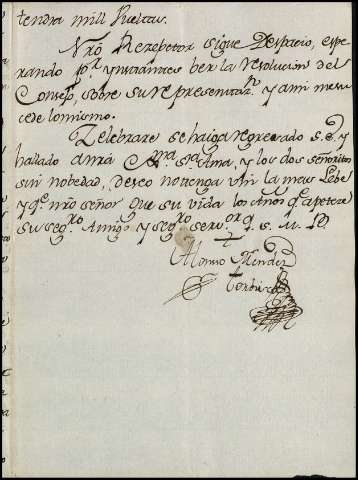 tendra mill Vueltas.
Nrô Rezeptor sigue Despacio, espe-
rando pr. ynstantes ber la resolucion del
Consejo, sobre su representazn. y a mi me su-
cede lo mismo.
Zelebrare se haiga regresado S. E. y
hallado a mra. sra. Ama, y los dos señoritos
sin nobedad, deseo no tenga vm la mas Lebe
y qe. nrô señor gue su vida los Años qe. apetece
su segro. Amigo y segro. servor. q. s. m. B.
Alonso Mendez